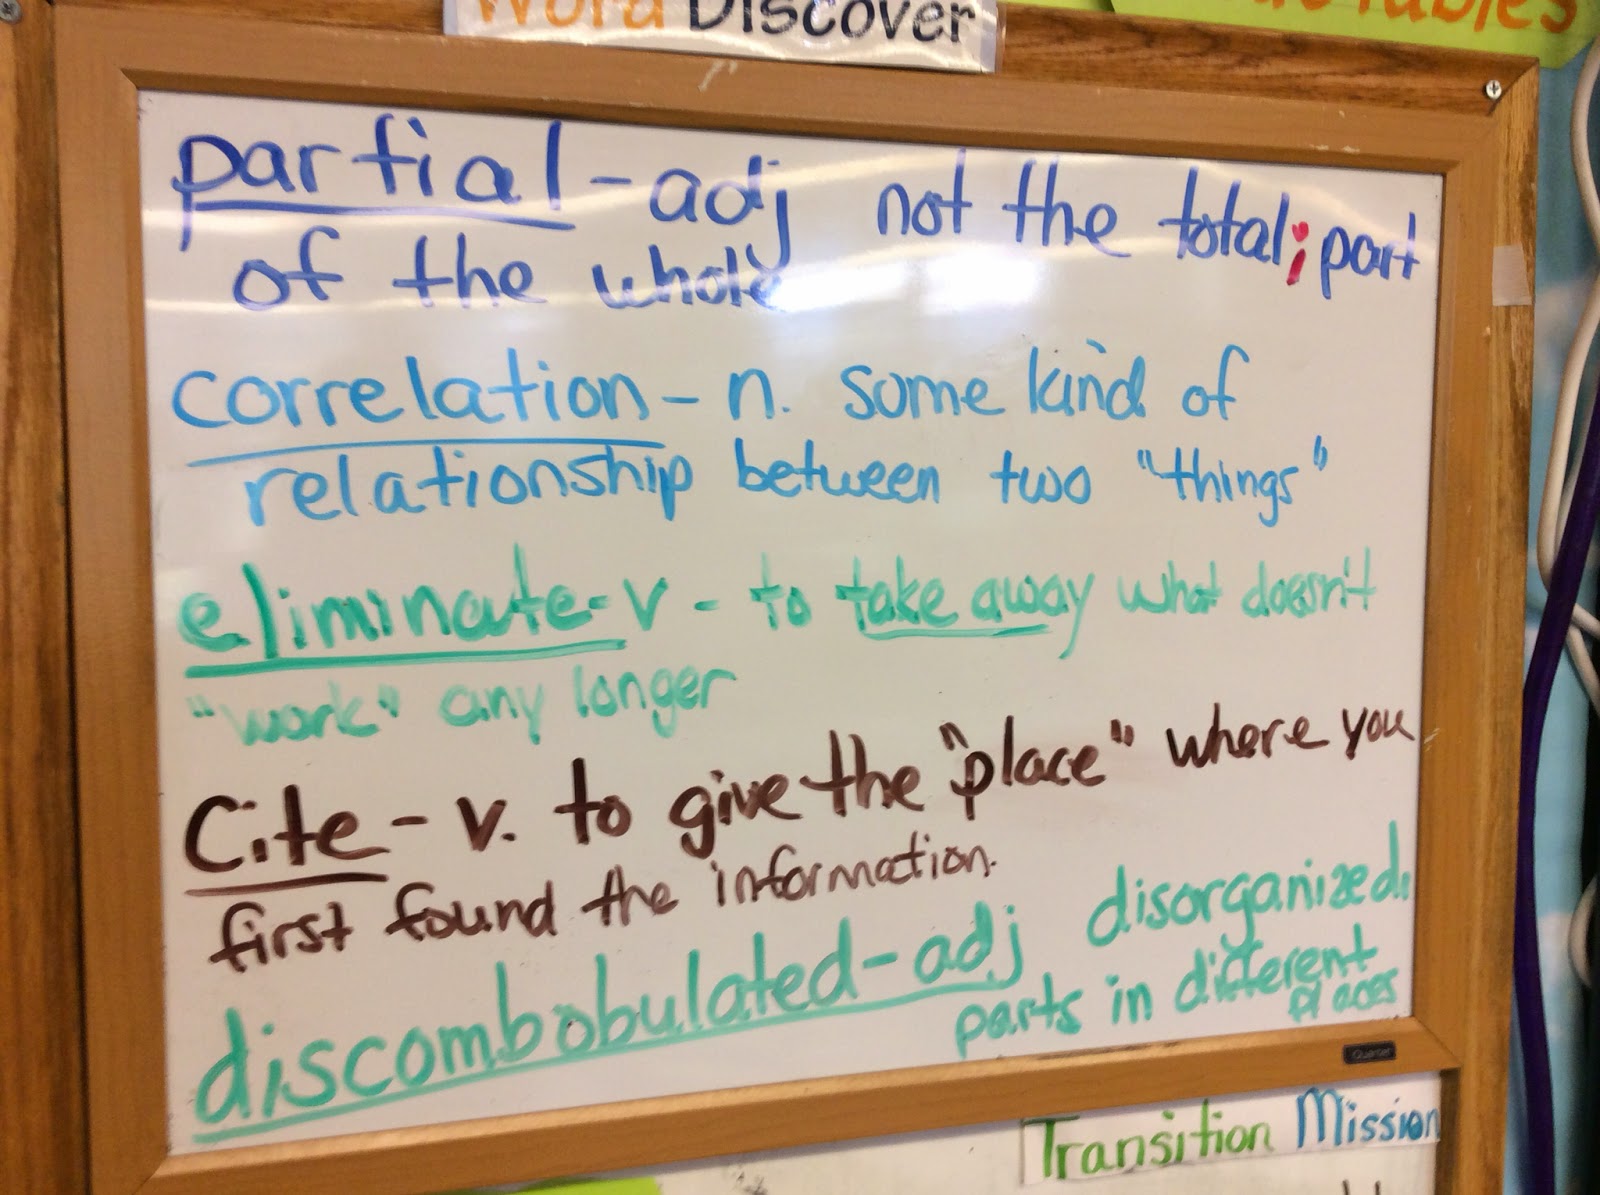 Word Discover
partial - adj not the total; part
of the whole
correlation - n. some kind of
relationship between two "things"
eliminate - v - to take away what doesn't
"work" any longer
Cite - v. to give the "place" where you
first found the information.
discombobulated - adj disorganized.
parts in different
places
Quartet
Transition Mission